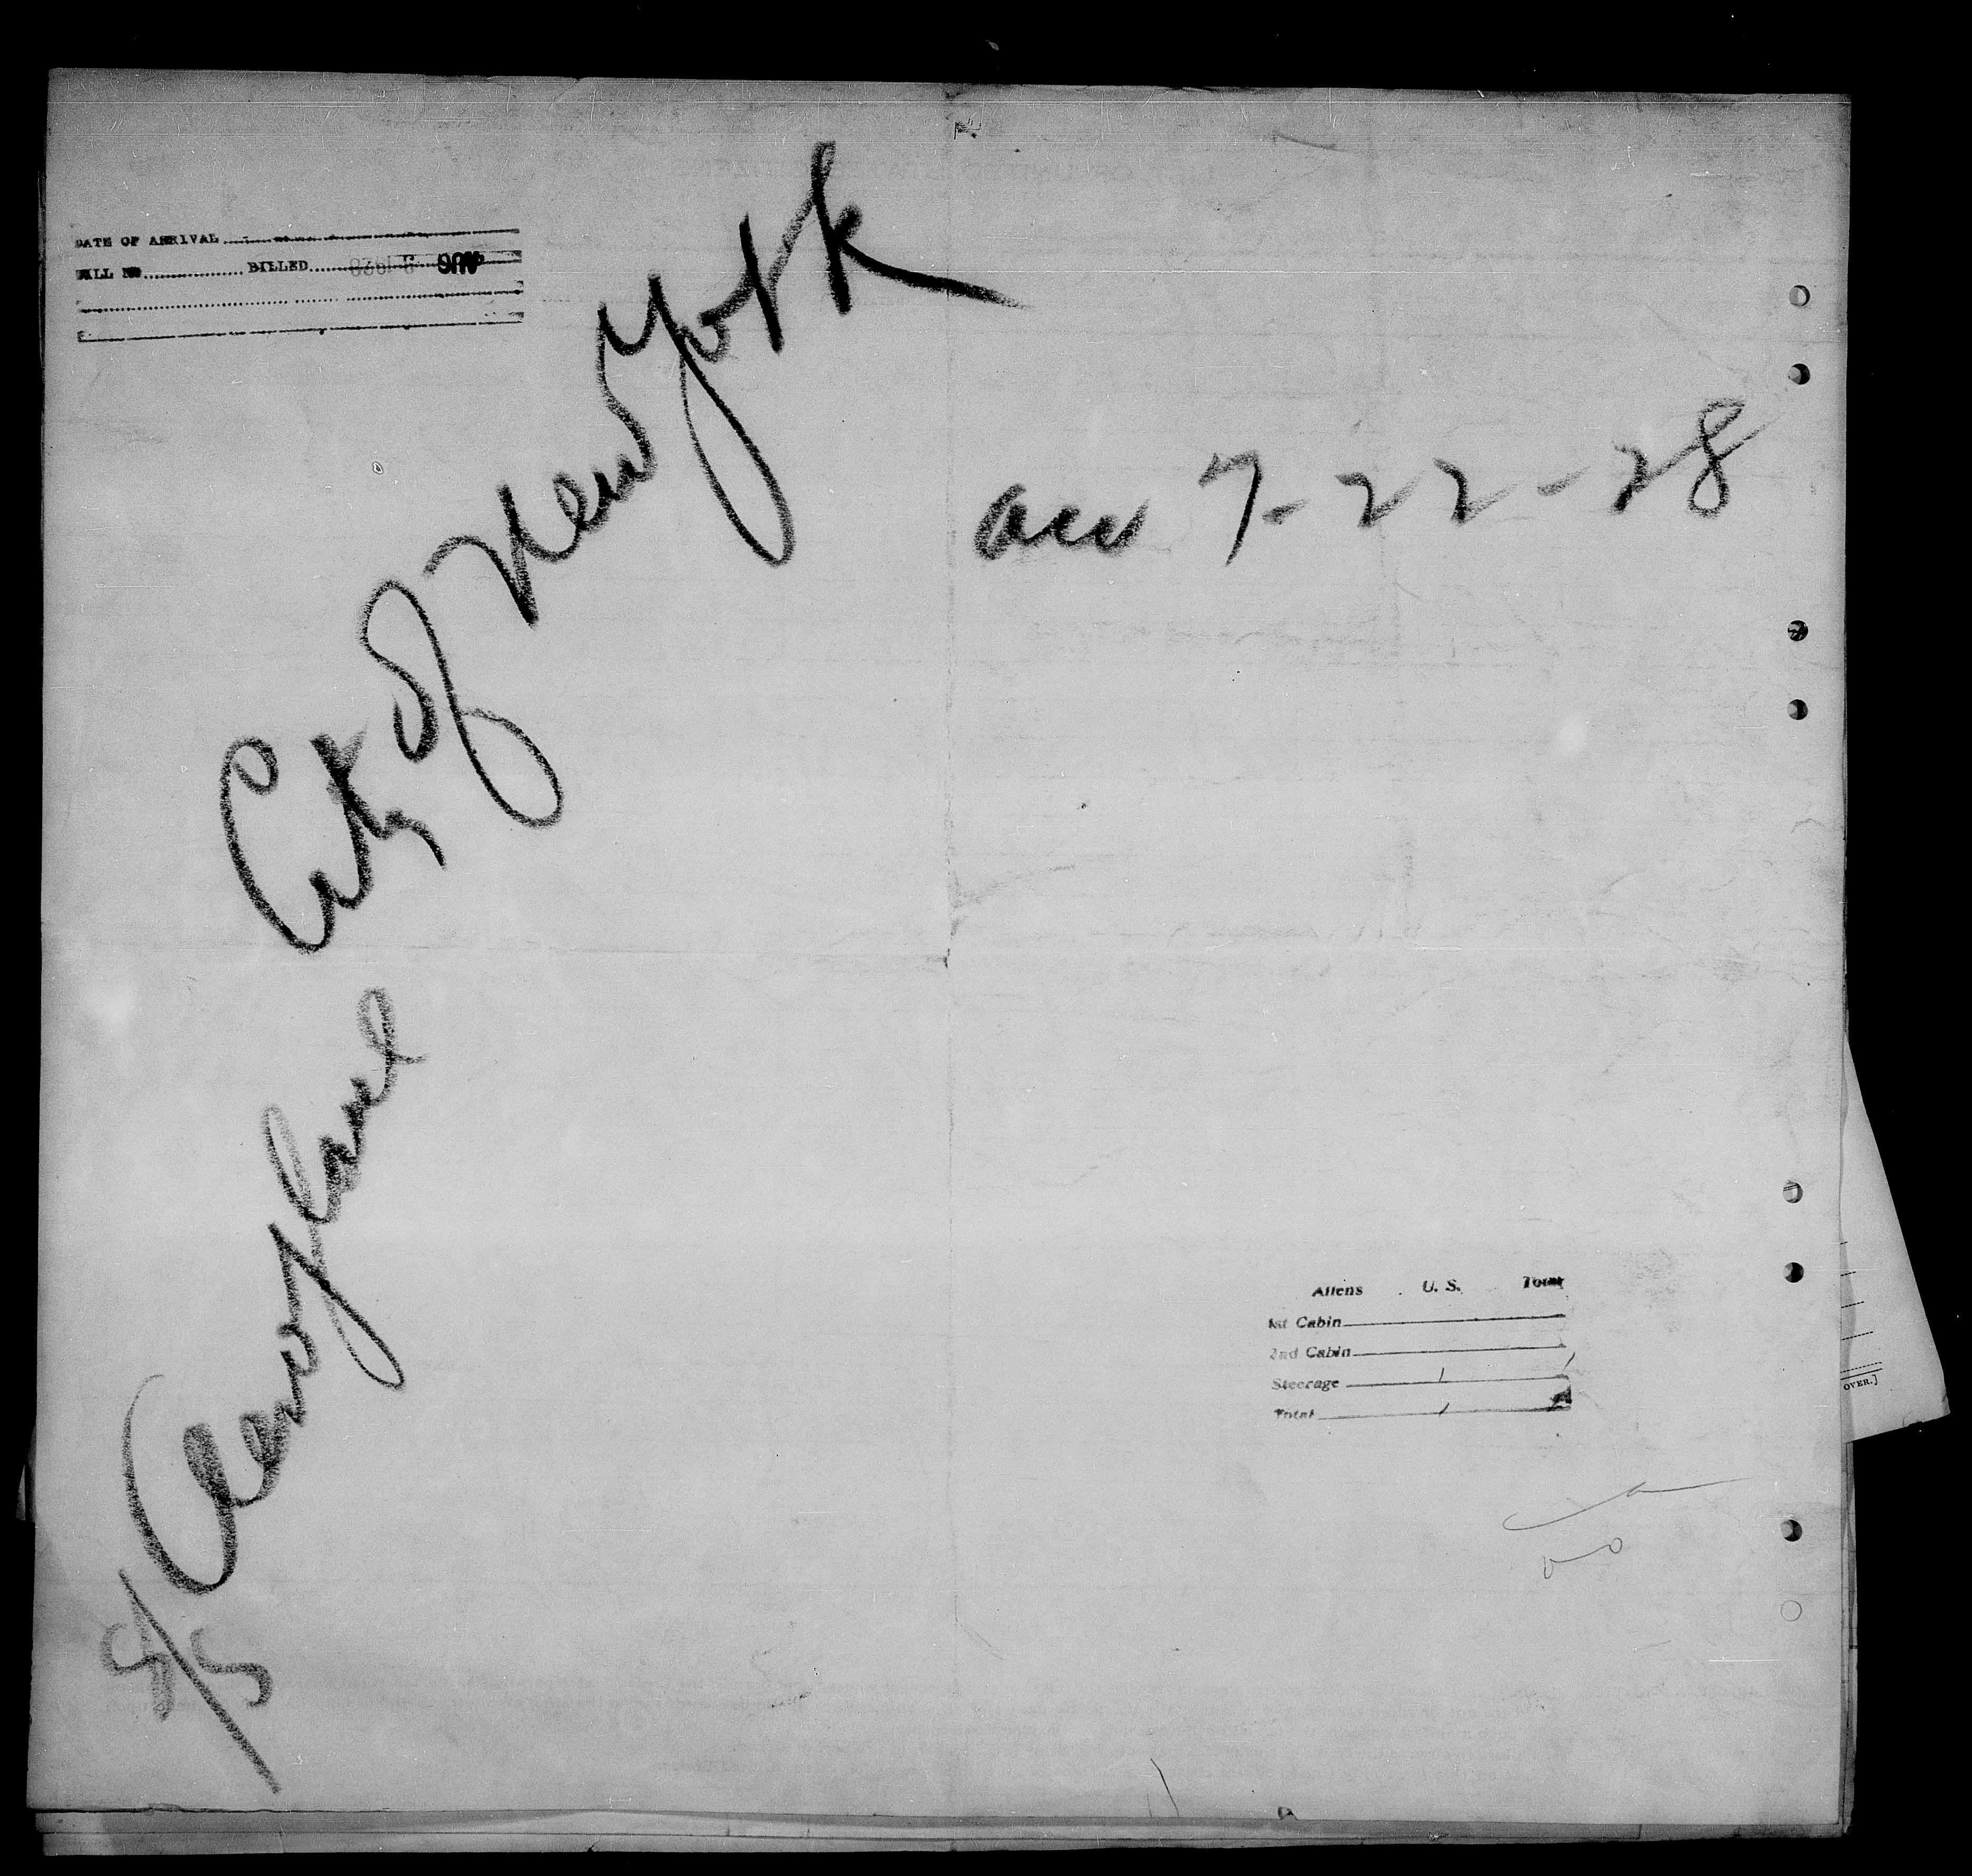 DATE OF ARRIVAL
BILL NO. BILLED
City of New York
arr 7-22-28
S/S Aeroplane
Aliens U. S. Total
1st Cabin
2nd Cabin
Steerage 1 1
Total 1
OVER.]